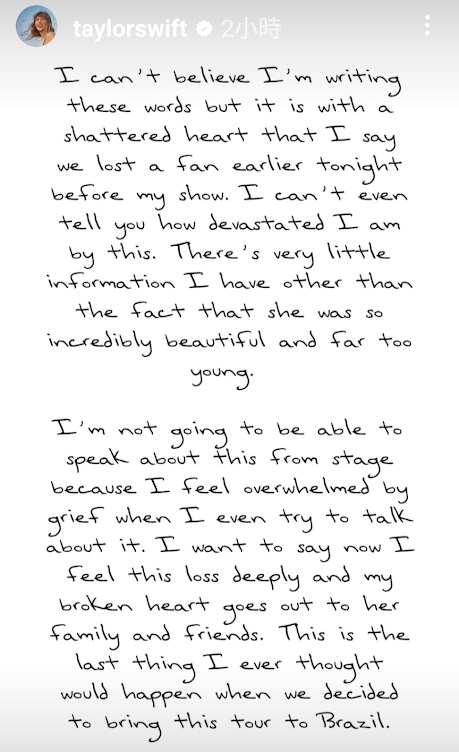 taylorswift 2小時
I can't believe I'm writing
these words but it is with a
shattered heart that I say
we lost a fan earlier tonight
before my show. I can't even
tell you how devastated I am
by this. There's very little
information I have other than
the fact that she was so
incredibly beautiful and far too
young.
I'm not going to be able to
speak about this from stage
because I feel overwhelmed by
grief when I even try to talk
about it. I want to say now I
feel this loss deeply and my
broken heart goes out to her
family and friends. This is the
last thing I ever thought
would happen when we decided
to bring this tour to Brazil.